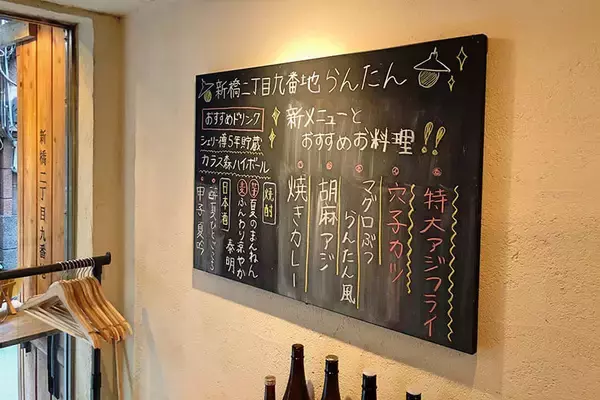 新橋二丁目九番地 らんたん
新メニューと
おすすめお料理!!
特大アジフライ
穴子カツ
マグロぶつ
らんたん風
胡麻アジ
焼きカレー
おすすめドリンク
シェリー樽5年貯蔵
カラス森ハイボール
焼酎
夏のまんねん
ふんわり涼やか
泰明
日本酒
甲子 夏吟
新橋二丁目九番